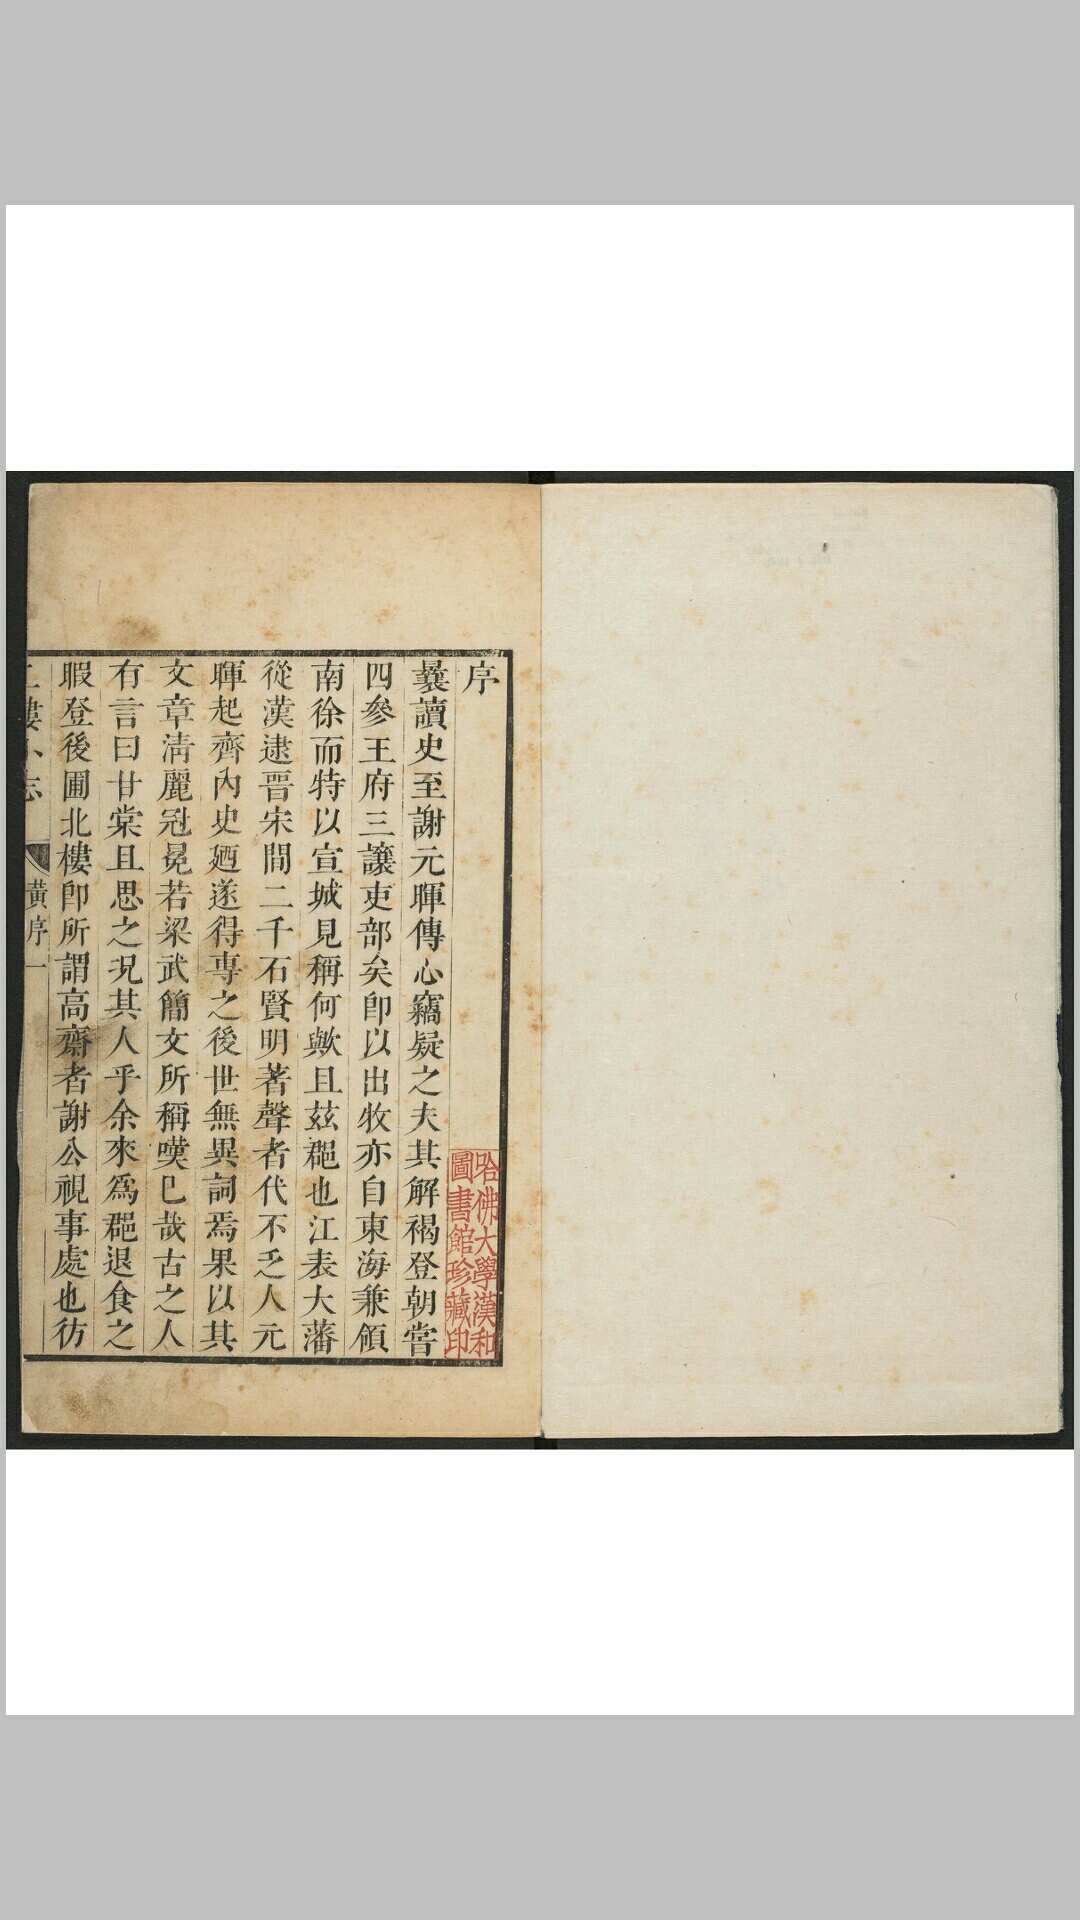 序
曩讀史至謝元暉傳心竊疑之夫其解褐登朝嘗
四參王府三讓吏部矣卽以出牧亦自東海兼領
南徐而特以宣城見稱何歟且玆郡也江表大藩
從漢逮晉宋間二千石賢明著聲者代不乏人元
暉起齊內史廼遂得專之後世無異詞焉果以其
文章淸麗冠冕若梁武簡文所稱嘆已哉古之人
有言曰甘棠且思之況其人乎余來爲郡退食之
暇登後圃北樓卽所謂高齋者謝公視事處也彷
樓小志
黄序
一
哈佛大學漢和
圖書館珍藏印